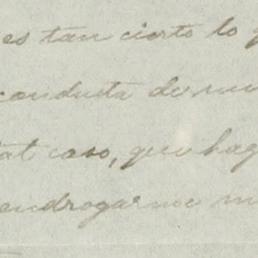 es tan cierto lo
conducta de
tal caso, que hag
endrogarnos m